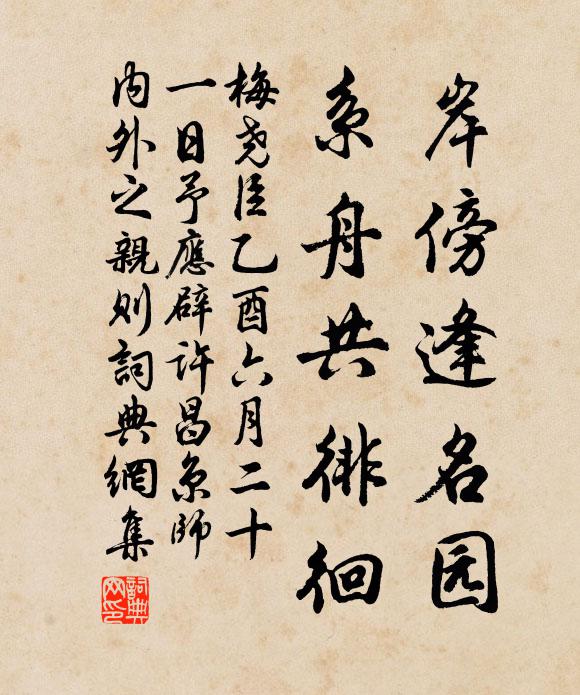 岸傍逢名园
系舟共徘徊
梅尧臣乙酉六月二十
一日予應辟许昌京师
内外之親则詞典網集
詞典
网印